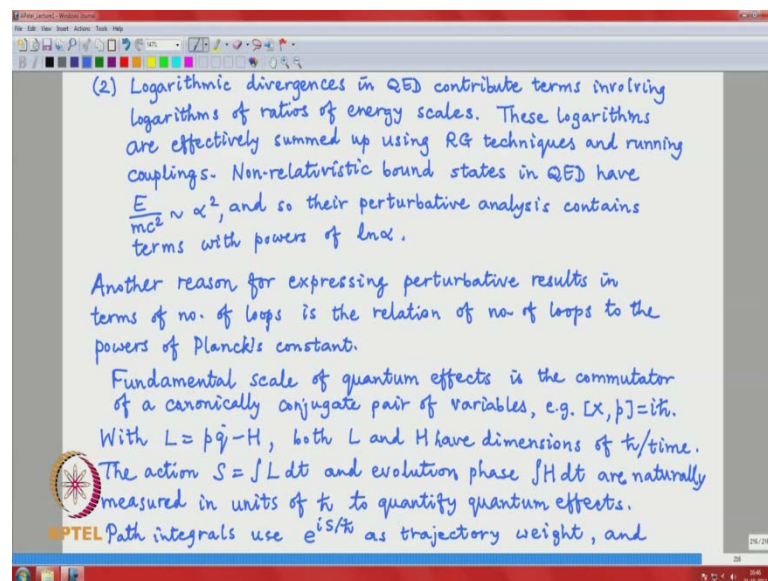 APatel_Lecture1 - Windows Journal
File Edit View Insert Actions Tools Help
(2) Logarithmic divergences in QED contribute terms involving
logarithms of ratios of energy scales. These logarithms
are effectively summed up using RG techniques and running
couplings. Non-relativistic bound states in QED have
E/mc² ~ α², and so their perturbative analysis contains
terms with powers of lnα.
Another reason for expressing perturbative results in
terms of no. of loops is the relation of no of loops to the
powers of Planck's constant.
Fundamental scale of quantum effects is the commutator
of a canonically conjugate pair of variables, e.g. [x,p]=iħ.
With L = pq̇-H, both L and H have dimensions of ħ/time.
The action S = ∫L dt and evolution phase ∫H dt are naturally
measured in units of ħ to quantify quantum effects.
NPTEL Path integrals use e^{iS/ħ} as trajectory weight, and